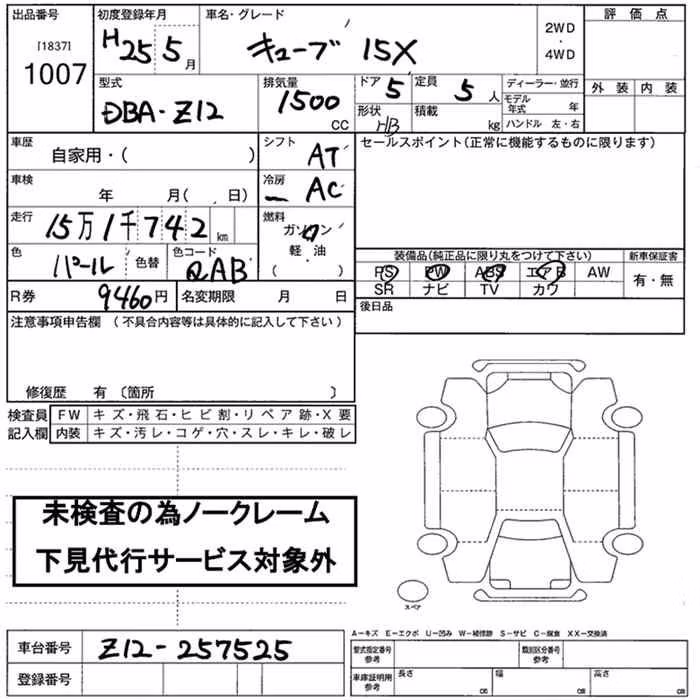 出品番号
[1837]
1007
初度登録年月
H25 5月
車名・グレード
キューブ 15X
2WD
・
4WD
評価点
外装 内装
型式
DBA-Z12
排気量
1500
CC
ドア 5
定員 5人
形状 HB
積載 kg
ディーラー・並行
モデル年式 年
ハンドル 左・右
車歴
自家用・( )
シフト
AT
車検
年 月( 日)
冷房
AC
走行
15万1千742km
燃料
ガソリン
軽油
( )
色
パール
色替
色コード
QAB
R券 9460円
名変期限 月 日
セールスポイント(正常に機能するものに限ります)
装備品(純正品に限り丸をつけて下さい)
新車保証書
PS PW ABS エアB AW
SR ナビ TV カワ
有・無
後日品
注意事項申告欄 (不具合内容等は具体的に記入して下さい)
修復歴 有 〔箇所 〕
検査員
記入欄
FW キズ・飛石・ヒビ割・リペア跡・X要
内装 キズ・汚レ・コゲ・穴・スレ・キレ・破レ
未検査の為ノークレーム
下見代行サービス対象外
スペア
車台番号 Z12-257525
登録番号
A-キズ E-エクボ U-凹み W-補修跡 S-サビ C-腐食 XX-交換済
型式指定番号
参考
類別区分番号
参考
車庫証明用
参考
長さ cm
幅 cm
高さ cm